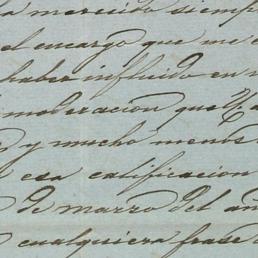 ha merecido siemp
el encargo que me
haber influido en
moderacion que V.
y mucho menos
esa calificacion
de marzo del añ
cualquiera frase